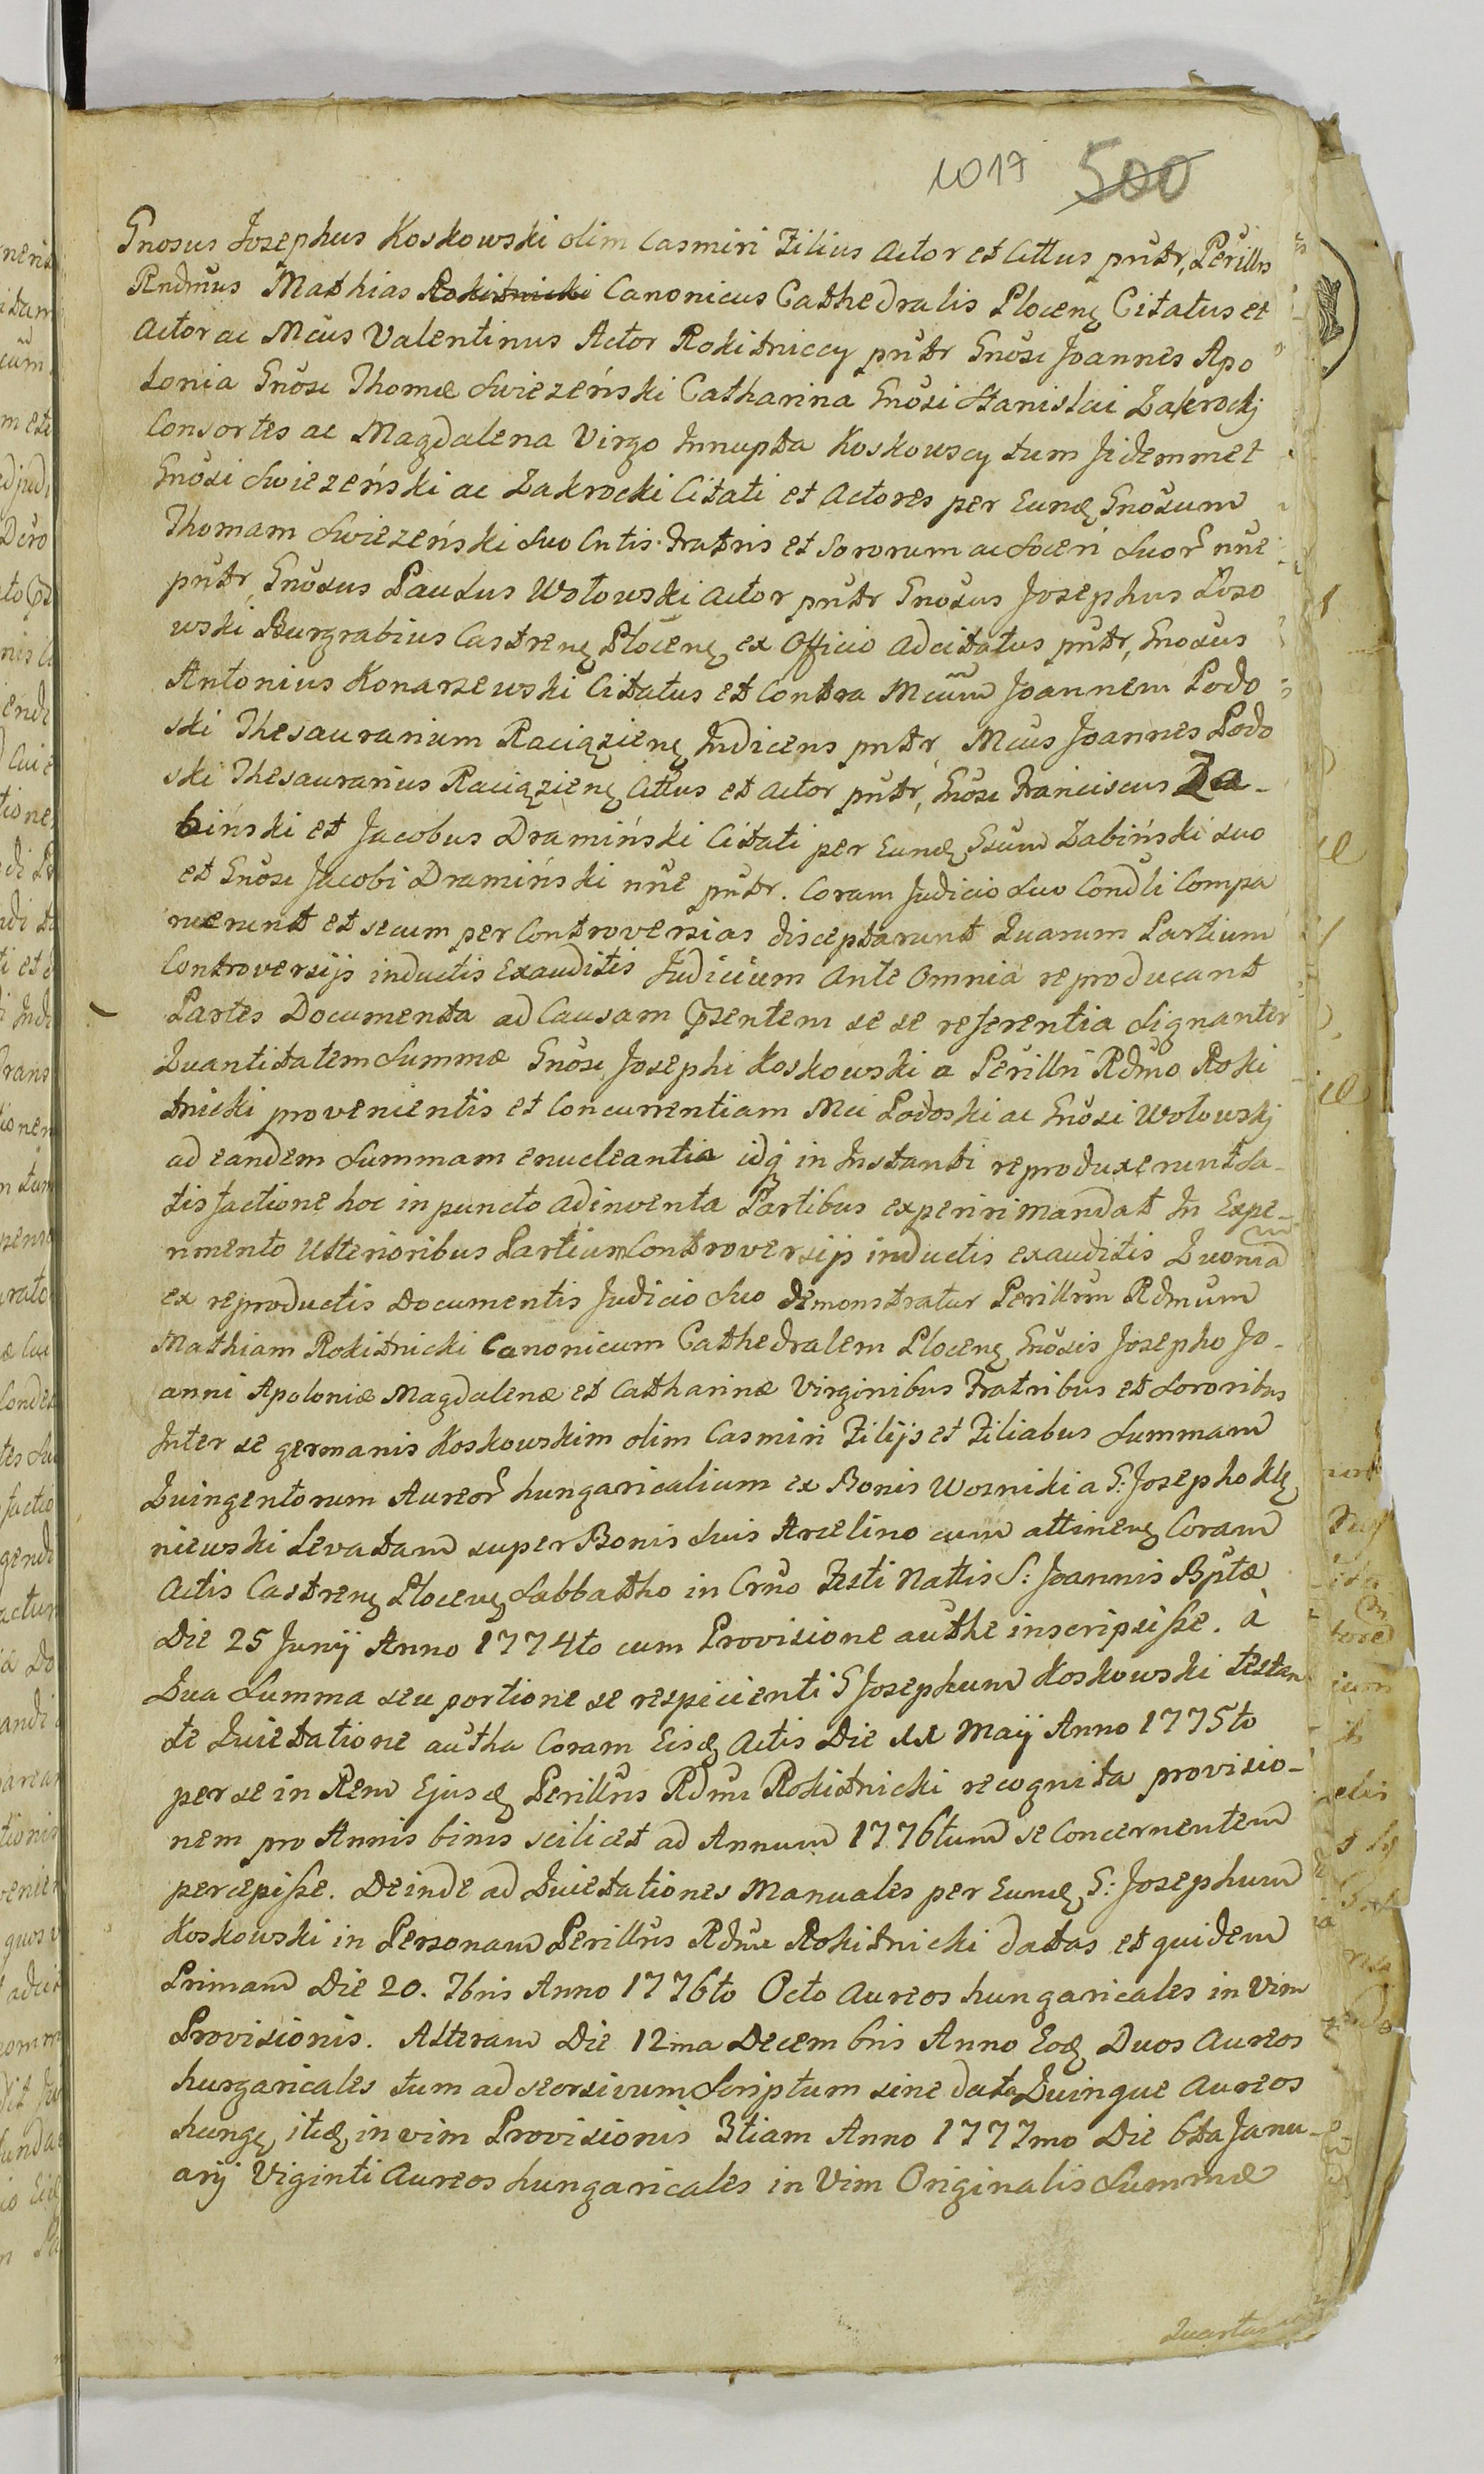 1017 500
Gnosus Josephus Koskowski olim Casmiri Filius Actor et Cittus pntr, Perillris
Rndmus Mathias Rokitnicki Canonicus Cathedralis Plocen Citatus et
Actor ac Mcus Valentinus Actor Rokitniccy pntr Gnosi Joannes Apo
lonia Gnosi Thomæ Swiezeński Catharina Gnosi Stanislai Zakrockj
Consortes ac Magdalena Virgo Innupta Koskowscy tum Jidemmet
Gnosi Swiezeński ac Zakrocki Citati et Actores per Eund Gnosum
Thomam Swiezeński Suo Cntis Fratris et Sororum ac Soceri Suor nne
pntr, Gnosus Paulus Wołowski Actor pntr Gnosus Josephus Łoso
wski Burgrabius Castren Plocen ex Officio adcitatus pntr, Gnosus
Antonius Konarzewski Citatus et Contra Mcum Joannem Podo
ski Thesaurarium Raciązien Indicens pntr Mcus Joannes Podo
ski Thesaurarius Raciązien Cittus et Actor pntr, Gnosi Franciscus Za-
biński et Jacobus Dramiński Citati per Eund Gsum Zabiński suo
et Gnosi Jacobi Dramiński nne pntr. Coram Judicio Suo Condli Compa
ruerunt et secum per Controversias disceptarunt Quarum Partium
Controversijs inductis Exauditis Judicium Ante Omnia reproducant
Partes Documenta ad Causam Psentem se se referentia Signanter
Quantitatem Summæ Gnosi Josephi Koskowski a Perillri Rdmo Roki
tnicki provenientis et Concurrentiam Mci Podoski ac Gnosi Wołowskj
ad eandem Summam enucleantia idq in Instanti reproduxerunt Sa-
tisfactione hoc in puncto adinventa Partibus experiri mandat In Expe-
rimento Ulterioribus Partium Controversijs inductis exauditis Quoniam
ex reproductis Documentis Judicio Suo demonstratur Perillrem Rdmum
Mathiam Rokitnicki Canonicum Cathedralem Plocen Gnosis Josepho Jo-
anni Apoloniæ Magdalenæ et Catharinæ Virginibus Fratribus et Sororibus
Inter se germanis Koskowskim olim Casmiri Filijs et Filiabus Summam
Quingentorum Aureor hungaricalium ex Bonis Wozniki a G: Josepho Klę
niewski Levatam super Bonis Suis Arcelino cum attinen Coram
Actis Castren Plocen Sabbatho in Crno Festi Nattis S: Joannis Bptæ
Die 25 Junij Anno 1774to cum Provisione authe inscripsisse. à
Qua Summa seu portione se respicienti G Josephum Koskowski testan
te Quietatione autha Coram Eisd Actis Die Maij Anno 1775to
per se in Rem Ejusd Perillris Rdmi Rokitnicki recognita provisio-
nem pro Annis binis scilicet ad Annum 1776tum se Concernentem
percepisse. Deinde ad Quietationes Manuales per Eund G: Josephum
Koskowski in Personam Perillris Rdmi Rokitnicki datas et quidem
Primam Die 20. 7bris Anno 1776to Octo Aureos hungaricales in Vim
Provisionis. Alteram Die 12ma Decembris Anno Eod Duos Aureos
hungaricales tum ad seorsivum Scriptum sine data Quinque Aureos
hung itid in vim Provisionis 3tiam Anno 1777mo Die 6ta Janu-
arij Viginti Aureos hungaricales in Vim Originalis Summæ